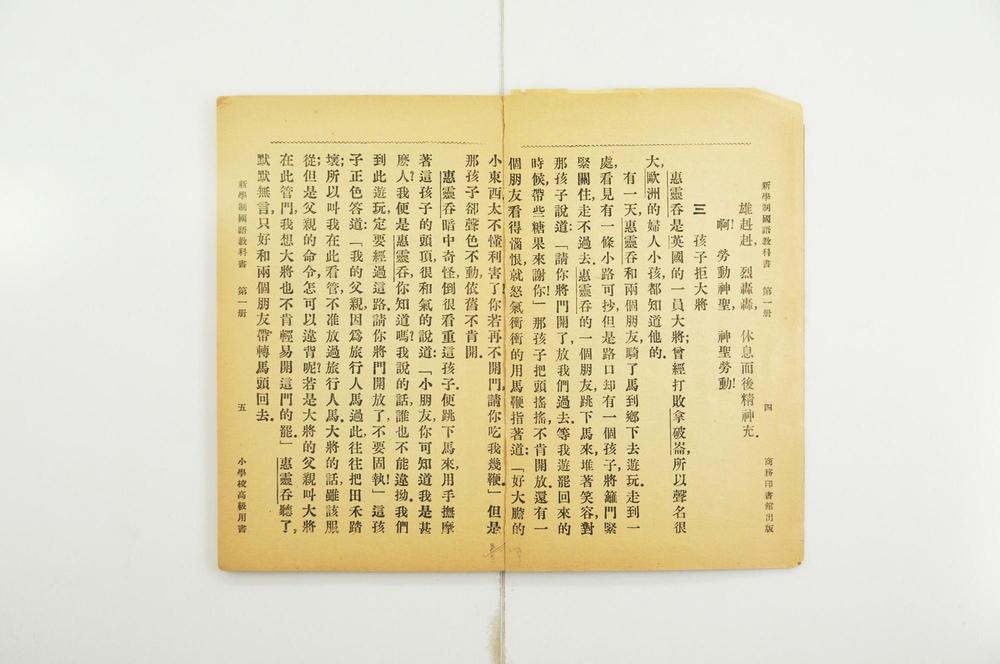 新學制國語教科書 第一册 四 商務印書館出版
雄赳赳, 烈轟轟, 休息而後精神充.
啊! 勞動神聖, 神聖勞動!
三 孩子拒大將
惠靈吞是英國的一員大將;曾經打敗拿破崙,所以聲名很
大,歐洲的婦人小孩,都知道他的.
有一天,惠靈吞和兩個朋友,騎了馬到鄉下去遊玩.走到一
處,看見有一條小路可抄,但是路口却有一個孩子,將籬門緊
緊關住,走不過去.惠靈吞的一個朋友,跳下馬來,堆著笑容,對
那孩子說道:「請你將門開了,放我們過去.等我遊罷回來的
時候,帶些糖果來謝你!」那孩子把頭搖搖,不肯開放.還有一
個朋友看得惱恨,就怒氣衝衝的用馬鞭指著道:「好大膽的
小東西,太不懂利害了!你若再不開門,請你吃我幾鞭.」但是
那孩子卻聲色不動,依舊不肯開.
惠靈吞暗中奇怪,倒很看重這孩子.便跳下馬來,用手撫摩
著這孩子的頭頂,很和氣的說道:「小朋友,你可知道我是甚
麽人?我便是惠靈吞,你知道嗎?我說的話,誰也不能違拗.我們
到此遊玩,定要經過這路.請你將門開放了,不要固執!」這孩
子正色答道:「我的父親,因爲旅行人馬過此,往往把田禾踏
壞;所以叫我在此看管,不准放過旅行人馬.大將的話,雖該服
從;但是父親的命令,怎可以違背呢?若是大將的父親,叫大將
在此管門,我想大將也不肯輕易開這門的罷」惠靈吞聽了,
默默無言,只好和兩個朋友帶轉馬頭回去.
新學制國語教科書 第一册 五 小學校高級用書